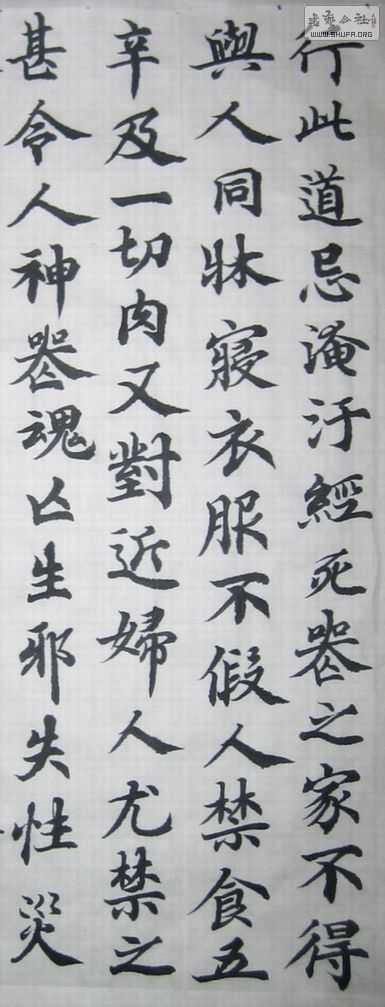 行此道忌淹汙經死喪之家不得
與人同牀寢衣服不假人禁食五
辛及一切肉又對近婦人尤禁之
甚令人神喪魂亡生邪失性災
書藝公社
WWW.SHUFA.ORG